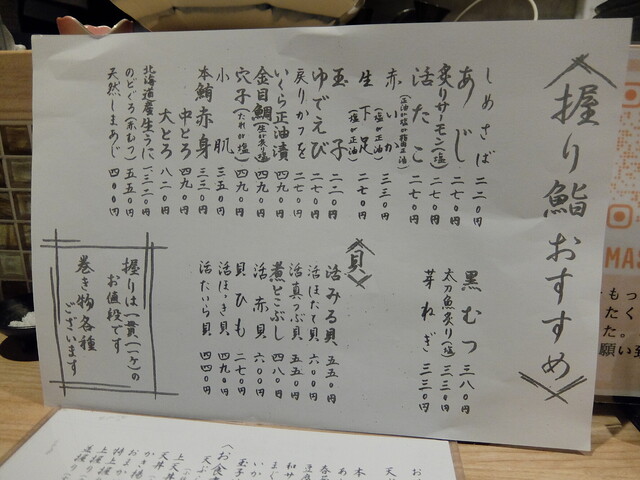 握り鮨おすすめ
しめさば 二二〇円
あじ 二七〇円
炙りサーモン(塩) 二七〇円
活たこ 二七〇円
(正油か塩か梅肉正油)
赤いか 三三〇円
(塩か正油)
生下足 二七〇円
(塩か正油)
玉子 二二〇円
ゆでえび 二七〇円
戻りかつを 二七〇円
いくら正油漬 四九〇円
金目鯛(生か炙り塩) 四九〇円
穴子(たれか塩) 四九〇円
小肌 三五〇円
本鮪赤身 三三〇円
中とろ 四九〇円
大とろ 八二〇円
北海道産生うに 一、三二〇円
のどぐろ(赤むつ) 五五〇円
天然しまあじ 四〇〇円
黒むつ 三八〇円
太刀魚炙り(塩) 三三〇円
芽ねぎ 三三〇円
貝
活みる貝 五五〇円
活ほたて貝 六〇〇円
活真つぶ貝 五五〇円
煮とこぶし 四八〇円
活赤貝 六〇〇円
貝ひも 二七〇円
活ほっき貝 四九〇円
活たいら貝 四四〇円
握りは一貫(一ケ)の
お値段です
巻き物各種
ございます